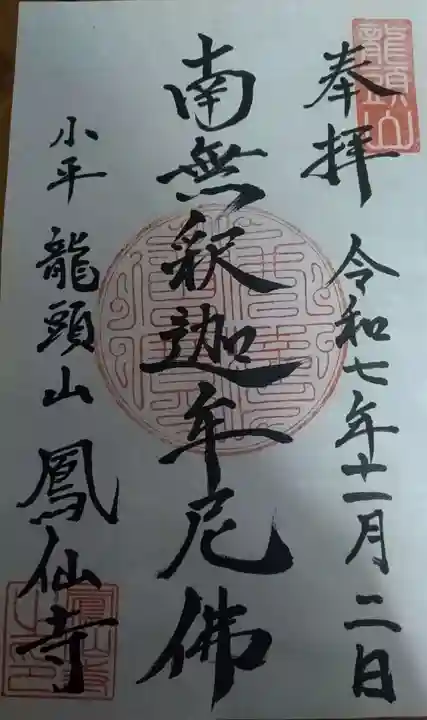 龍頭山
奉拝 令和七年十一月二日
南無釈迦牟尼佛
小平 龍頭山 鳳仙寺